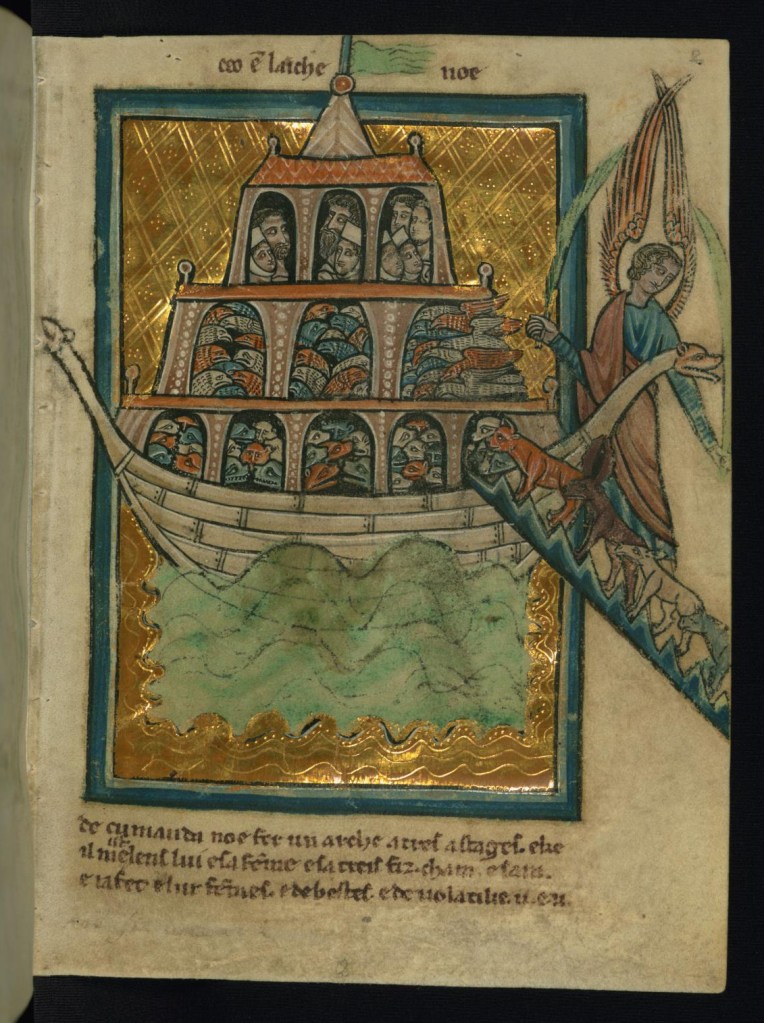 2
ceo ē larche noe
de cumanda noe fer un arche a tres astages. eke
il lui e sa fēme e sa treis fiz. cham. e sam.
e iafet e lur fēmes. e de bestes. e de uolatilie. ii. e. ii.